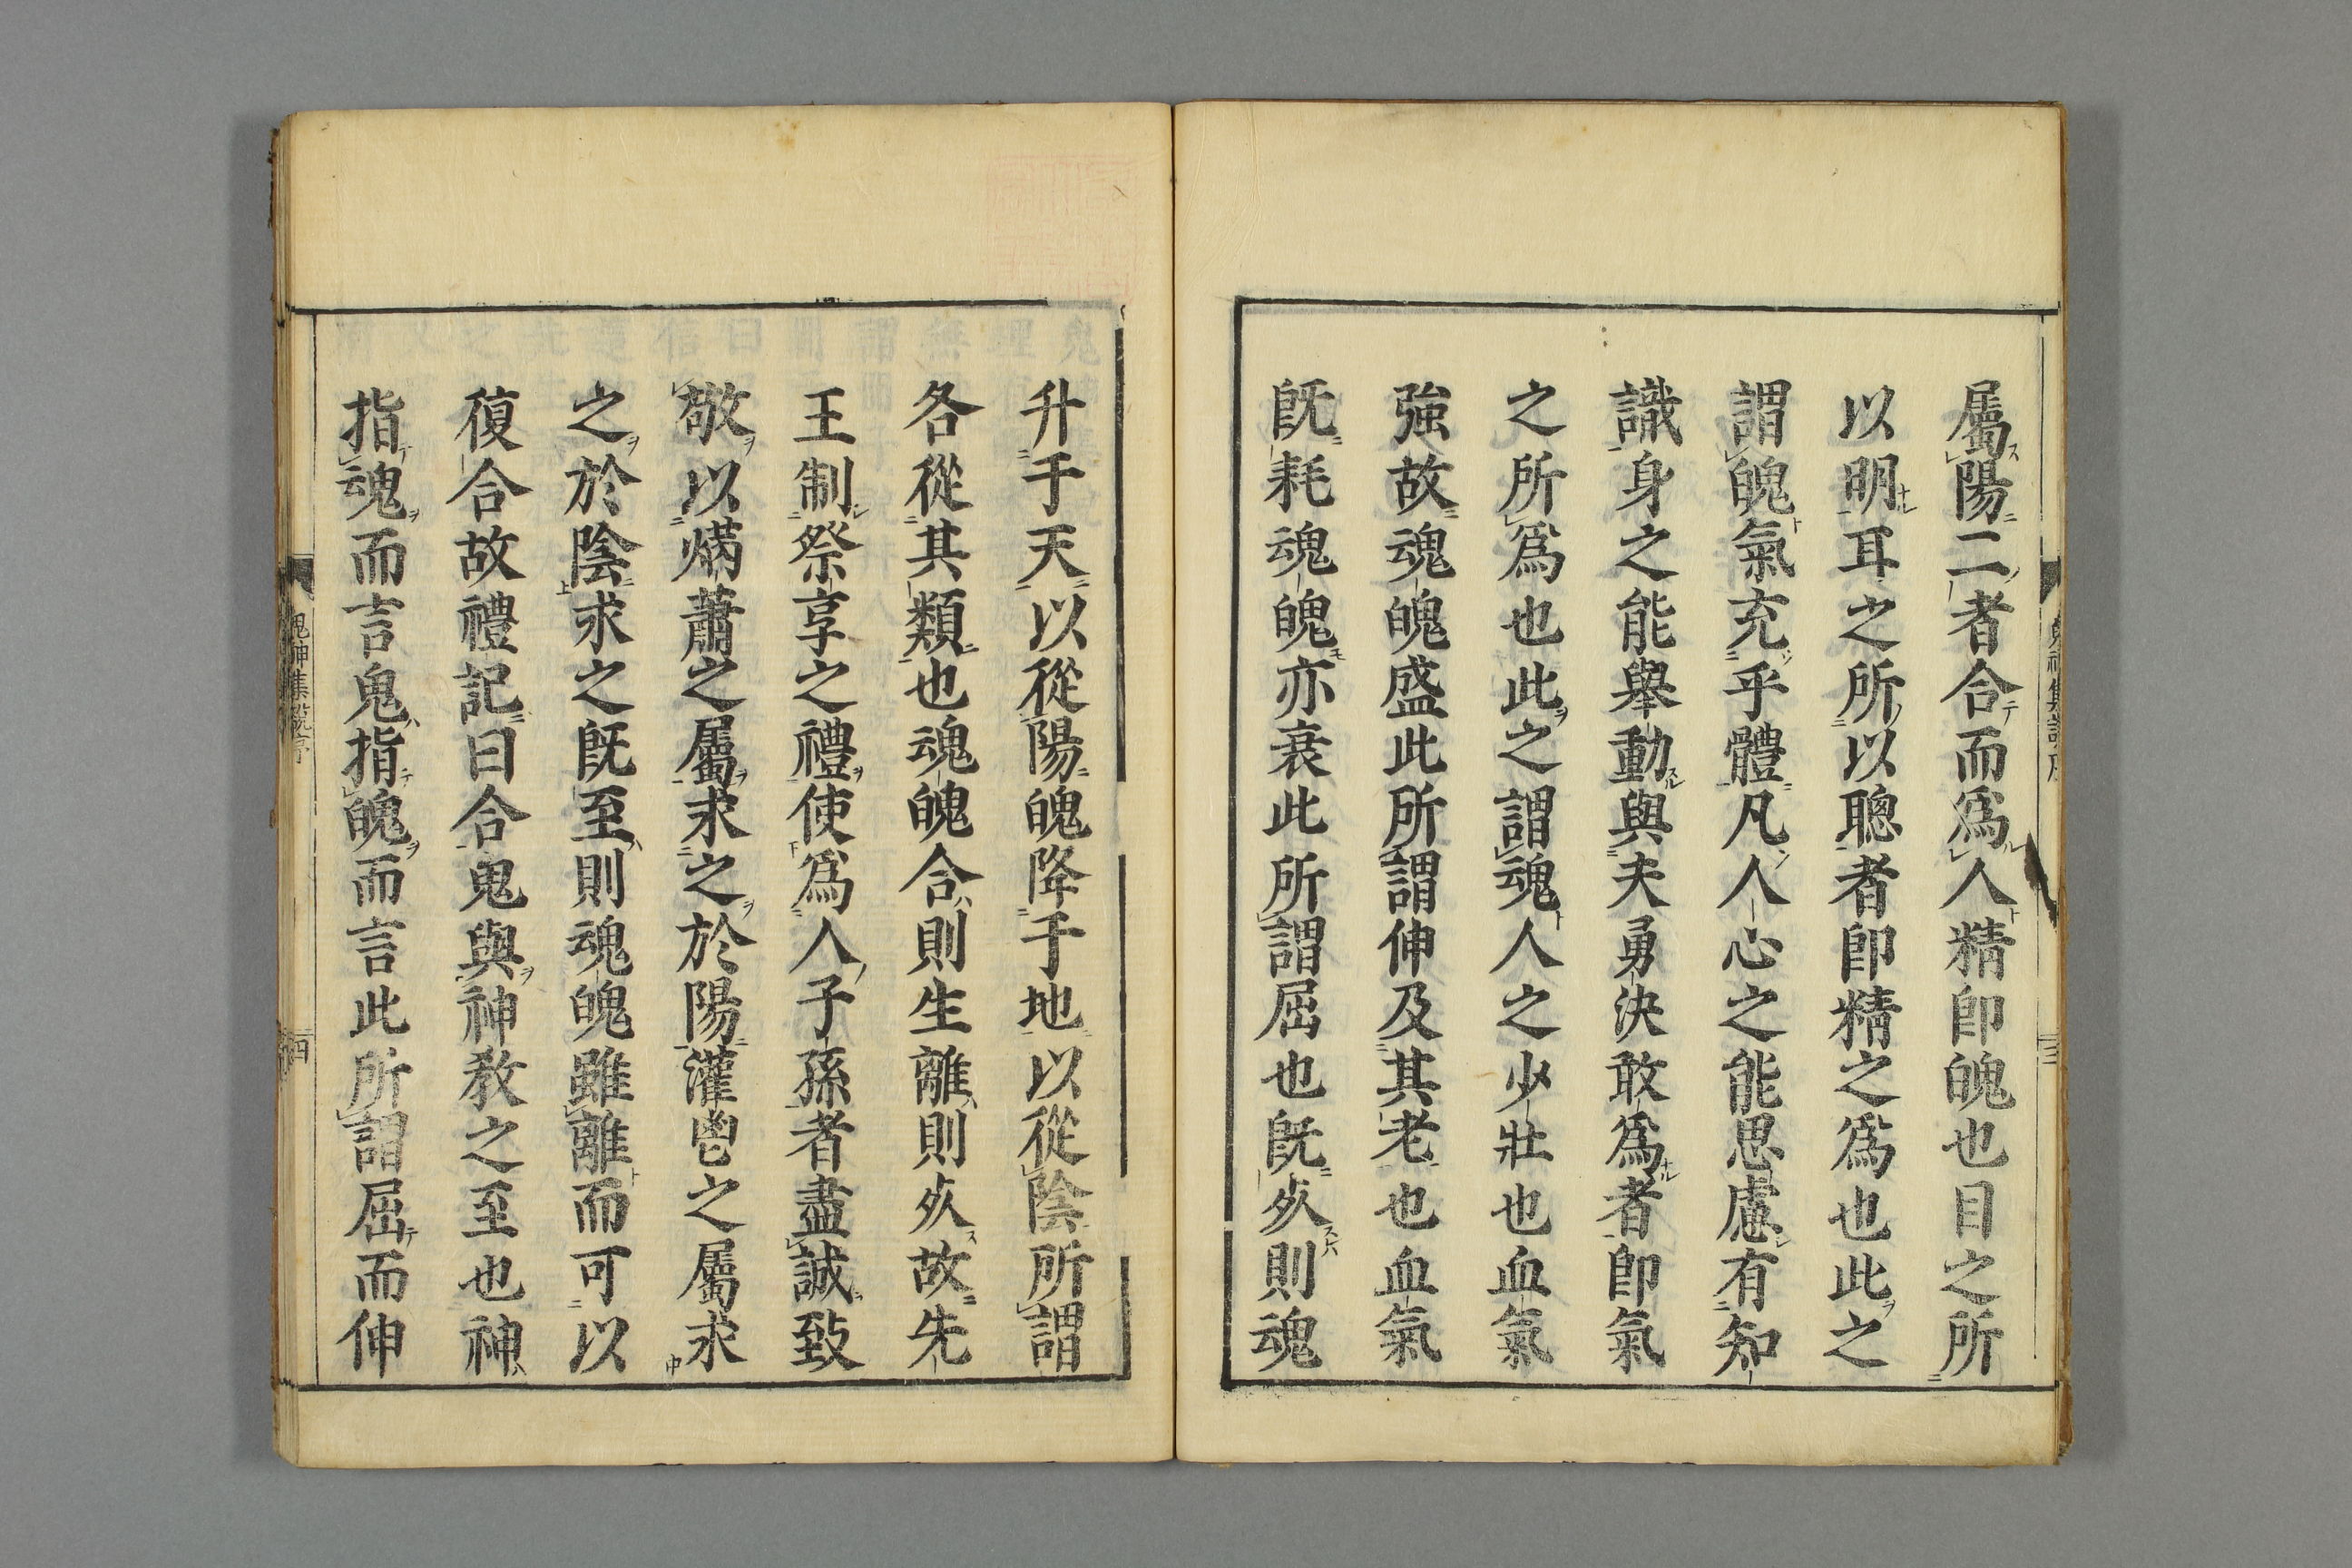 屬陽二者合而爲人精卽魄也目之所
以明耳之所以聰者卽精之爲也此之
謂魄氣充乎體凡人心之能思慮有知
識身之能舉動與夫勇決敢爲者卽氣
之所爲也此之謂魂人之少壯也血氣
強故魂魄盛此所謂伸及其老也血氣
旣耗魂魄亦衰此所謂屈也旣死則魂
升于天以從陽魄降于地以從陰所謂
各從其類也魂魄合則生離則死故先
王制祭享之禮使爲人子孫者盡誠致
敬以焫蕭之屬求之於陽灌鬯之屬求
之於陰求之旣至則魂魄雖離而可以
復合故禮記曰合鬼與神教之至也神
指魂而言鬼指魄而言此所謂屈而伸
鬼神集說序
四